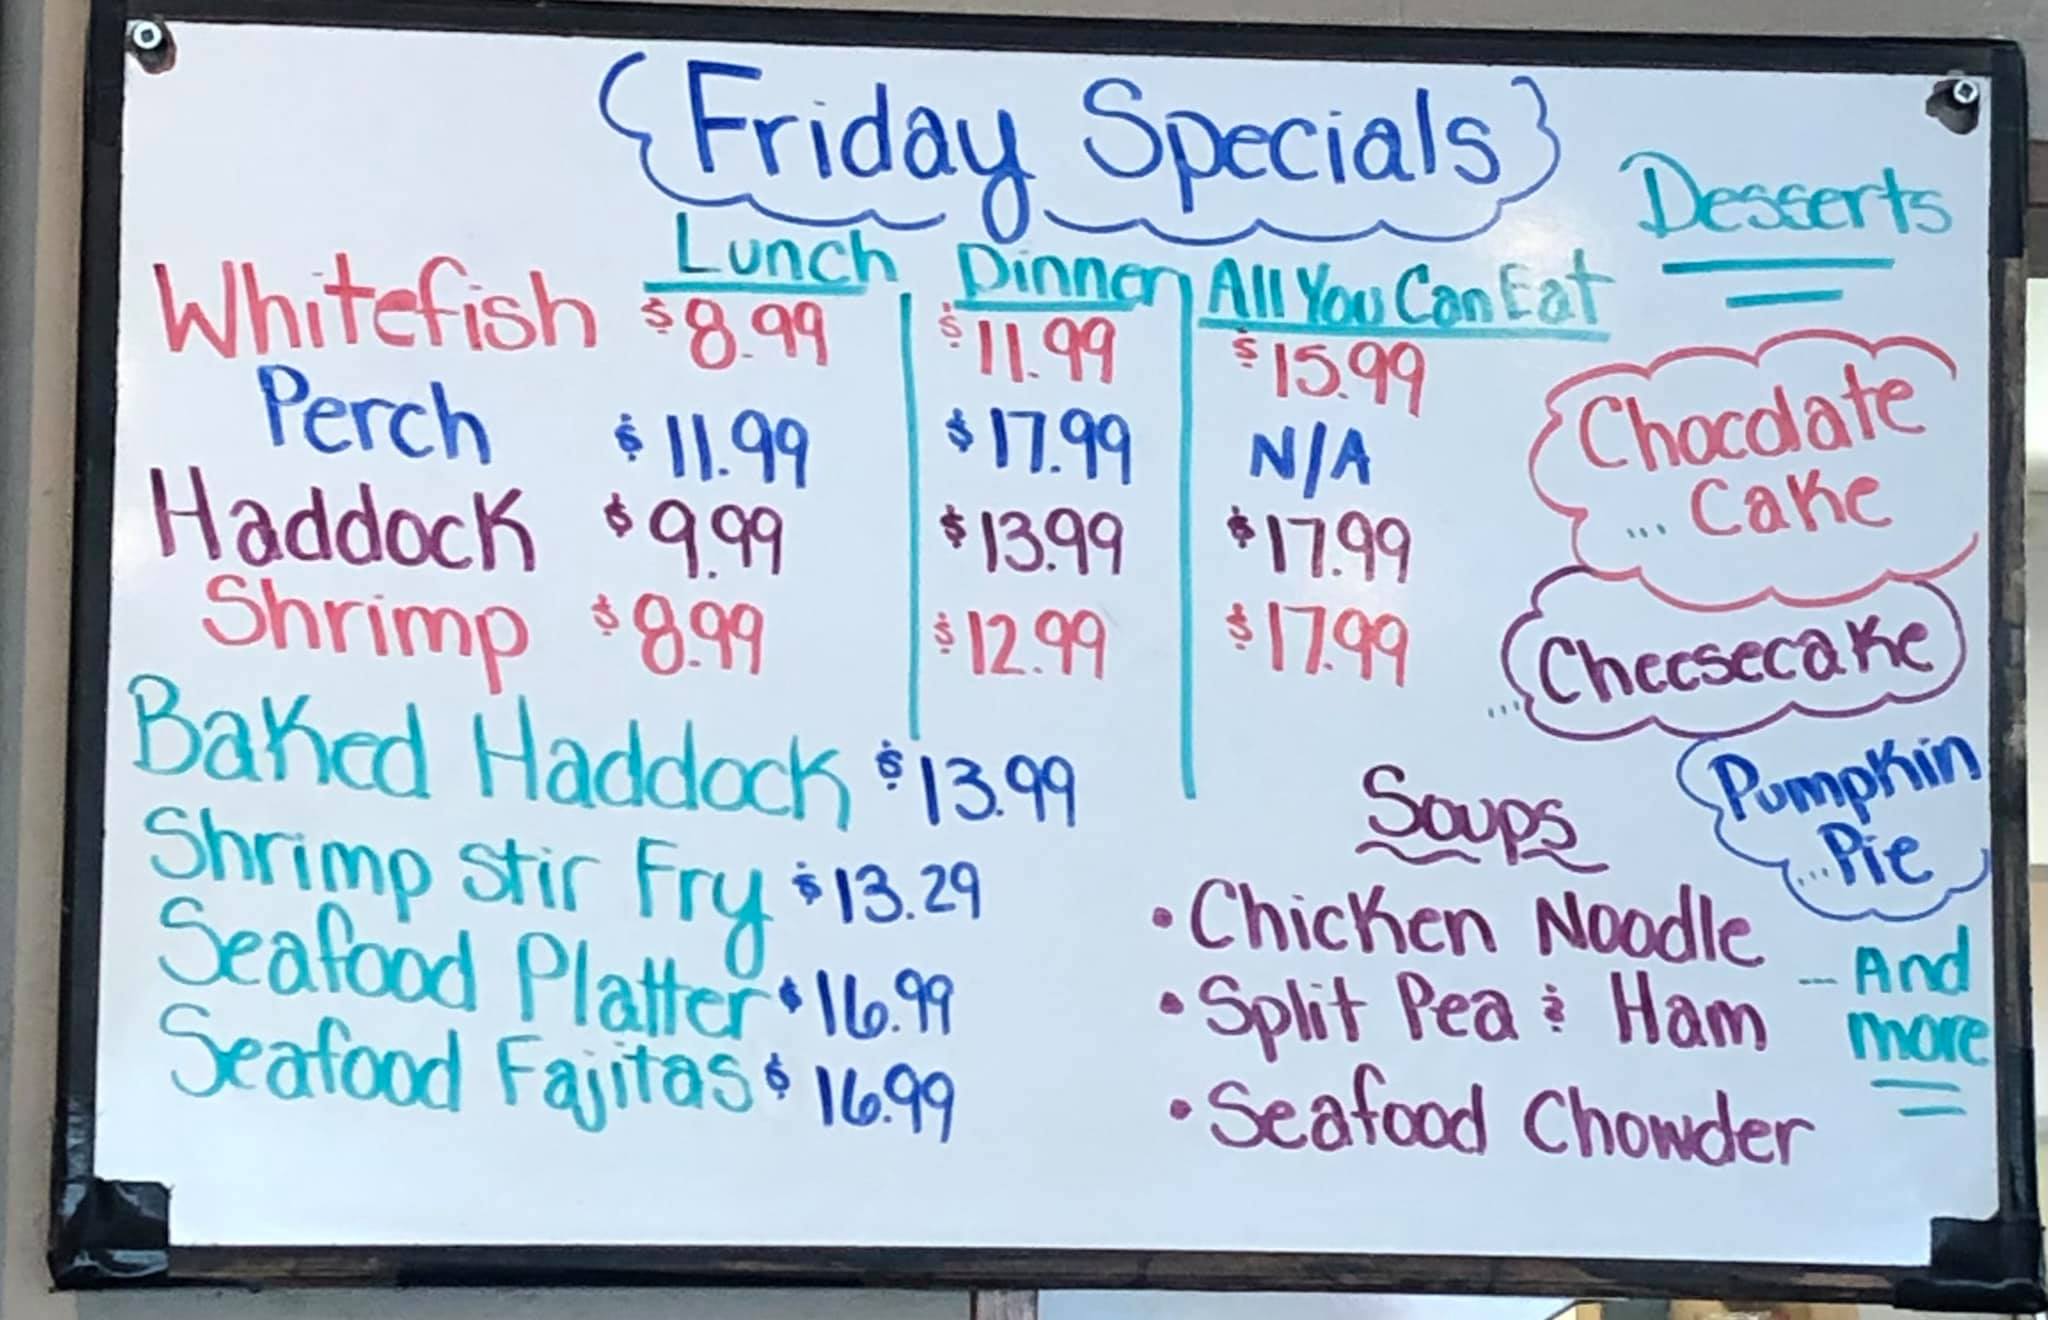 Friday Specials
Lunch Dinner All You Can Eat
Whitefish $8.99 $11.99 $15.99
Perch $11.99 $17.99 N/A
Haddock $9.99 $13.99 $17.99
Shrimp $8.99 $12.99 $17.99
Baked Haddock $13.99
Shrimp Stir Fry $13.29
Seafood Platter $16.99
Seafood Fajitas $16.99
Desserts
Chocolate
... Cake
... Cheesecake
Pumpkin
... Pie
... And
more
Soups
• Chicken Noodle
• Split Pea & Ham
• Seafood Chowder